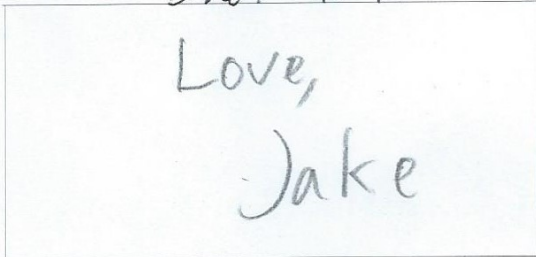 Love,
Jake